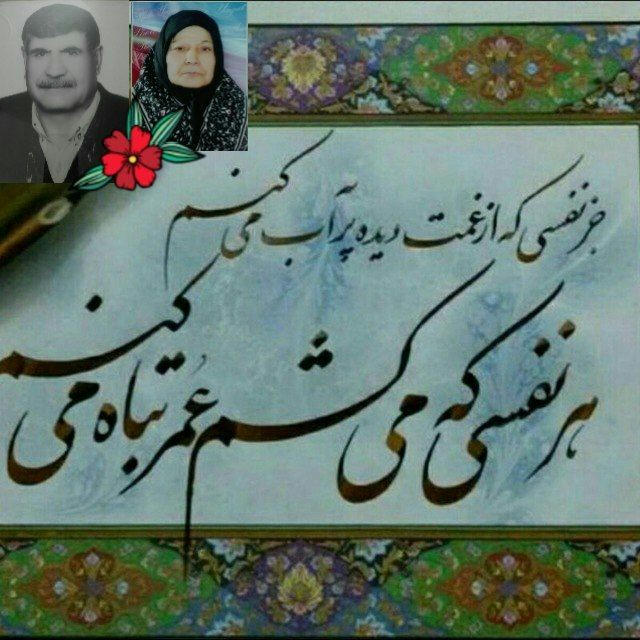 جز نفسی که از غمت دیده پرآب می کنم
هر نفسی که می کشم عُمر تباه می کنم